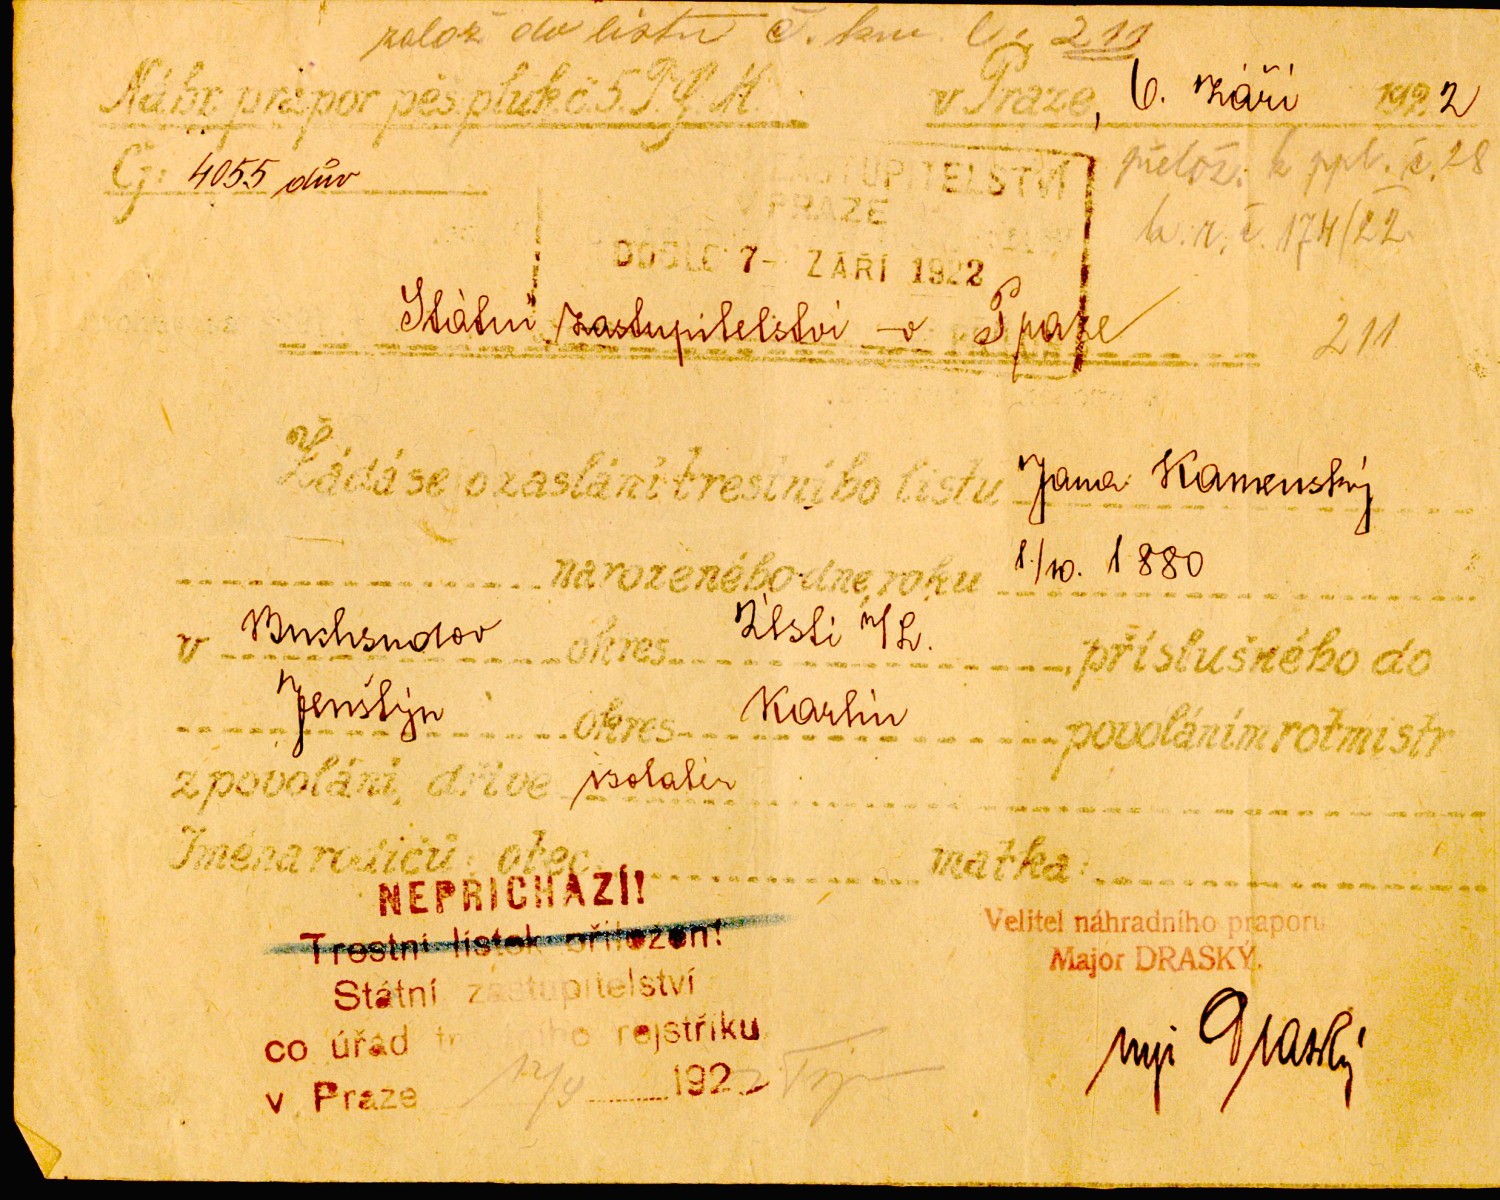 založ do listu č. km. l. 211
Náhr. prapor pěš. pluk č. 5. T. G. M. v Praze, 6. září 1922
Čj: 4055 dův přelož. k ppl. č. 28
ZASTUPITELSTVÍ
V PRAZE k. r. č. 174/22
DOŠLO 7- ZÁŘÍ 1922
Státní zastupitelství v Praze
211
Žádá se o zaslání trestního listu Jana Kamenský
narozeného dne, roku 1./10. 1880
v okres Ústí n/L. příslušného do
Jenštýn okres Karlín povoláním rotmistr
z povolání, dříve
Jména rodičů: otec: matka:
NEPŘICHÁZÍ!
Trestní lístek přiložen!
Státní zastupitelství
co úřad trestního rejstříku
v Praze 12/9 1922
Velitel náhradního praporu
Major DRASKÝ.
mjr Draský